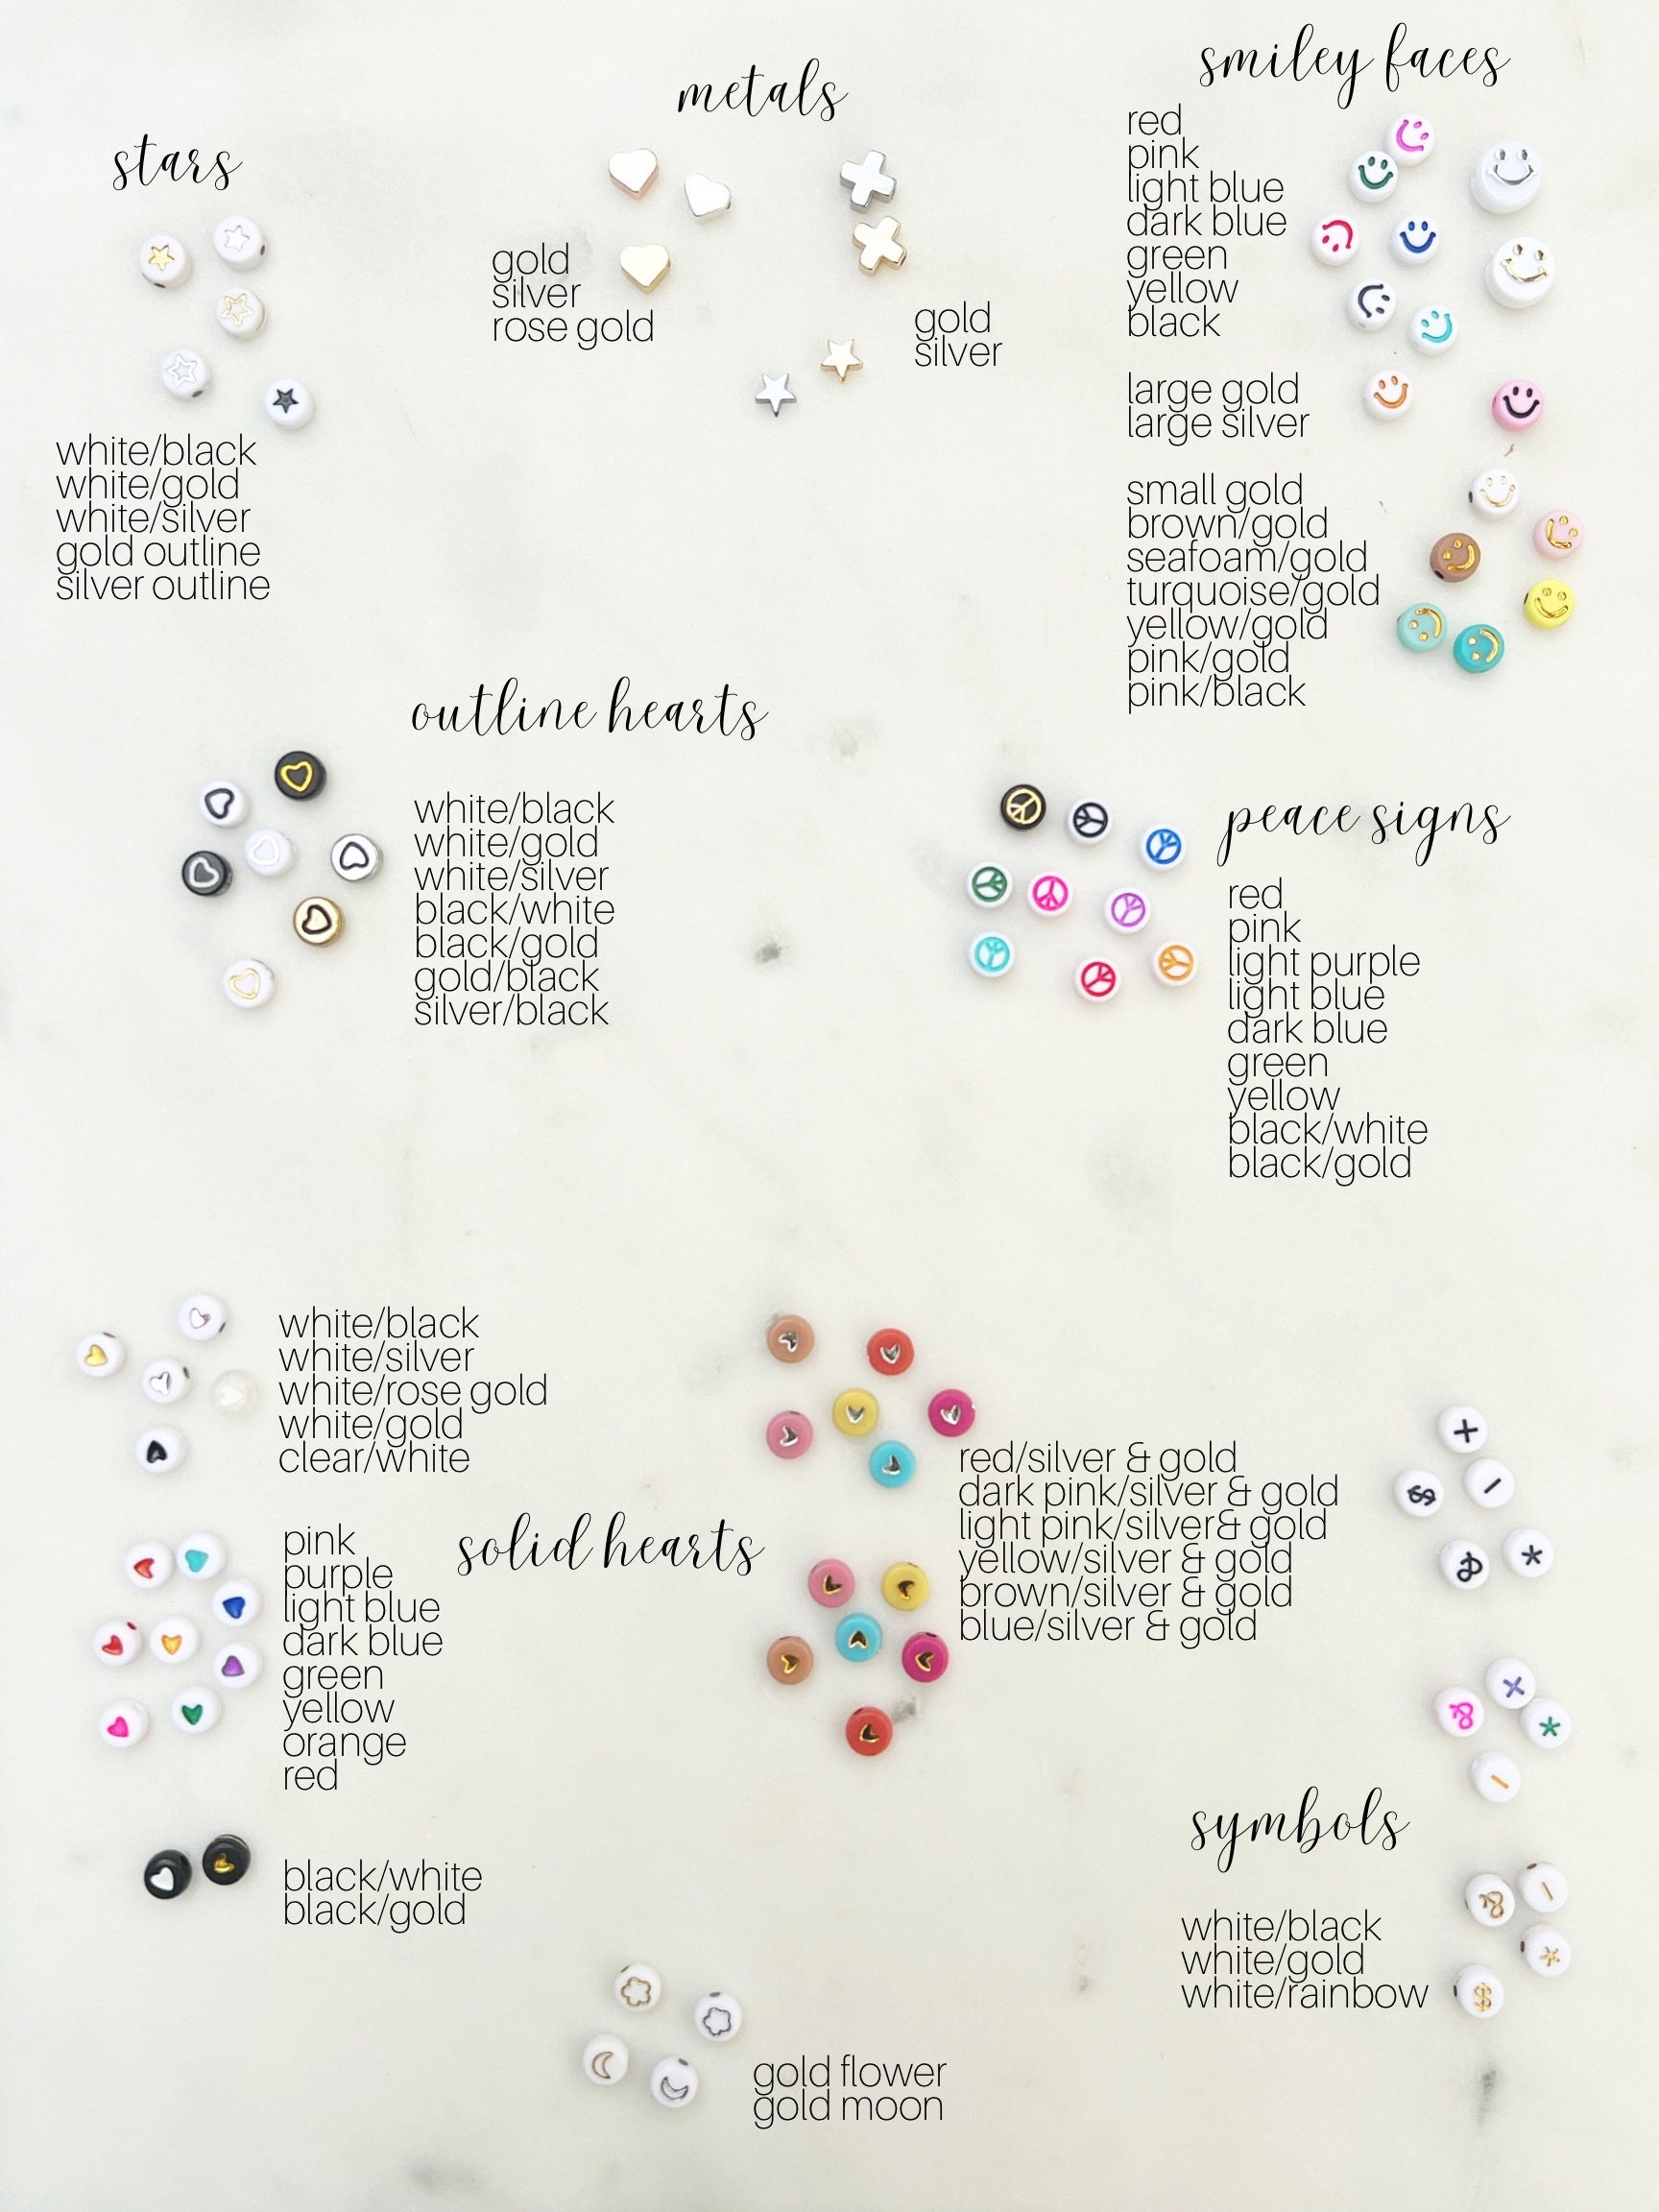 stars
white/black
white/gold
white/silver
gold outline
silver outline
metals
gold
silver
rose gold
gold
silver
smiley faces
red
pink
light blue
dark blue
green
yellow
black
large gold
large silver
small gold
brown/gold
seafoam/gold
turquoise/gold
yellow/gold
pink/gold
pink/black
outline hearts
white/black
white/gold
white/silver
black/white
black/gold
gold/black
silver/black
peace signs
red
pink
light purple
light blue
dark blue
green
yellow
black/white
black/gold
white/black
white/silver
white/rose gold
white/gold
clear/white
solid hearts
pink
purple
light blue
dark blue
green
yellow
orange
red
black/white
black/gold
red/silver & gold
dark pink/silver & gold
light pink/silver& gold
yellow/silver & gold
brown/silver & gold
blue/silver & gold
symbols
white/black
white/gold
white/rainbow
gold flower
gold moon